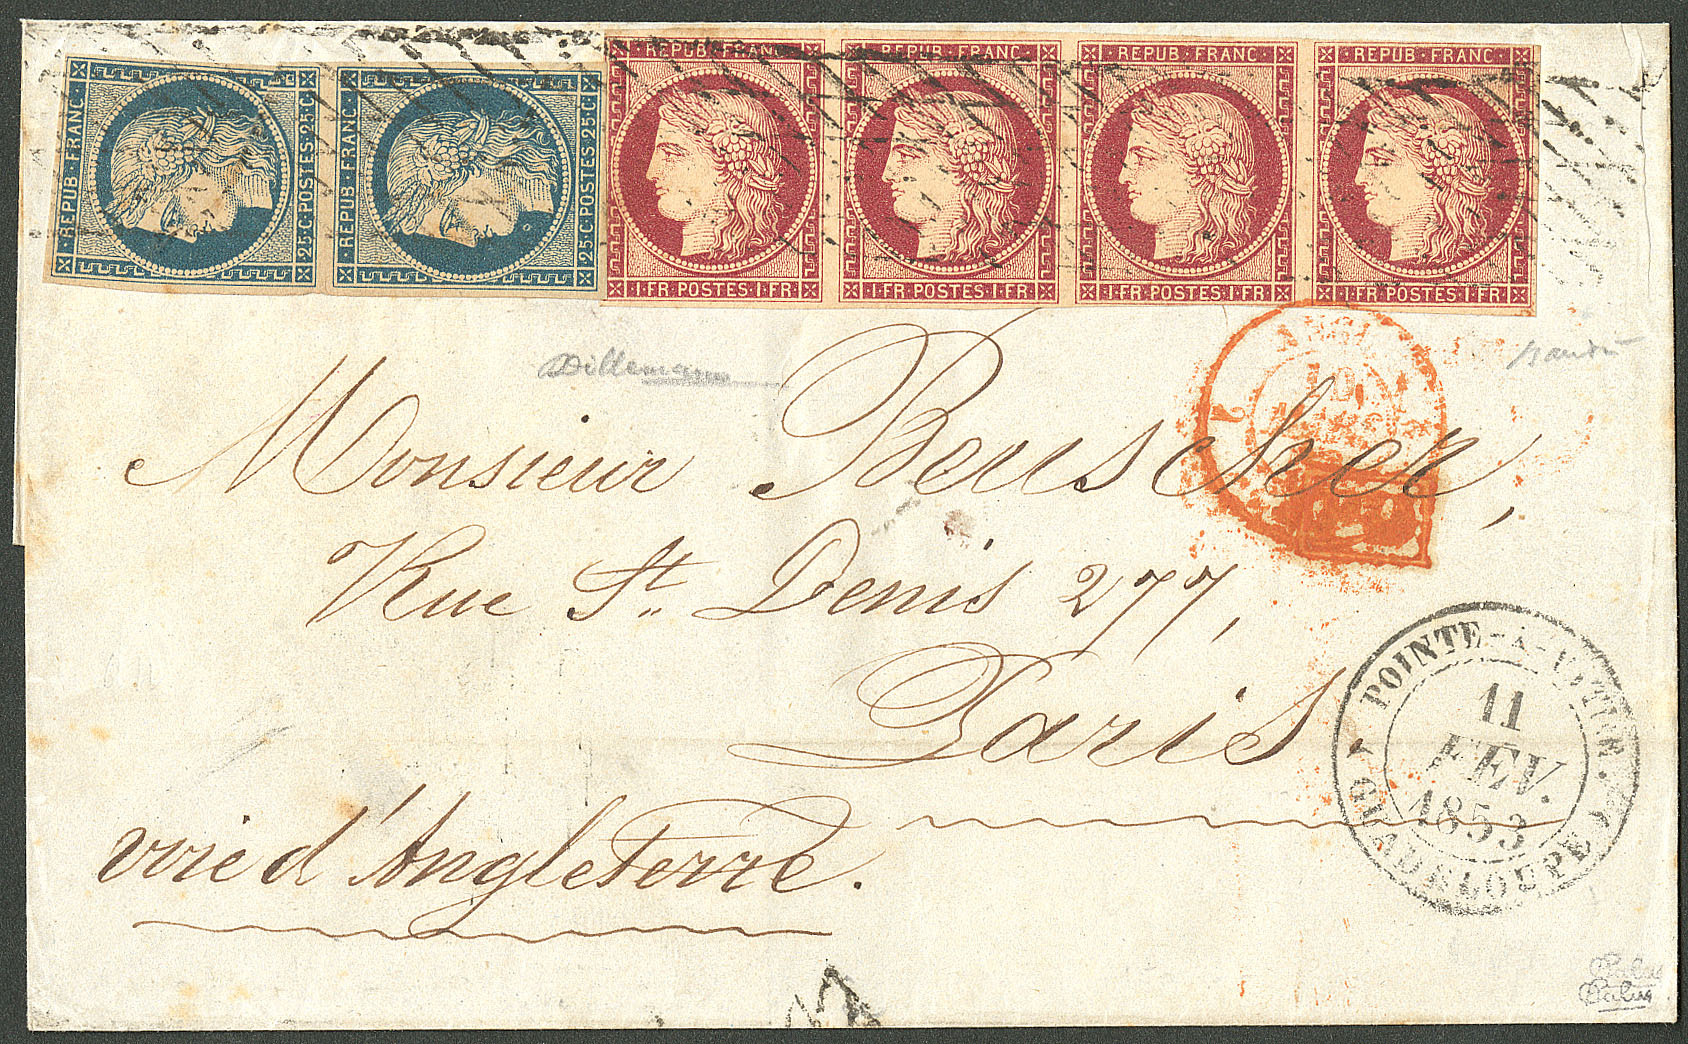 REPUB·FRANC·
25·C·POSTES·25·C
REPUB·FRANC·
25·C·POSTES·25·C
·REPUB·FRANC·
·1·FR·POSTES·1·FR·
·REPUB·FRANC·
·1·FR·POSTES·1·FR·
·REPUB·FRANC·
·1·FR·POSTES·1·FR·
·REPUB·FRANC·
·1·FR·POSTES·1·FR·
Dillemann
ANGL
10
Monsieur Beuscher,
Rue St. Denis 277,
Paris
voie d'Angleterre.
POINTE-A-PITRE
11
FEV.
1853
GUADELOUPE
Calves